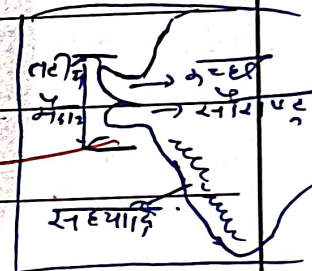 तटीय
मैदान
कच्छ
सौराष्ट्र
सह्याद्रि